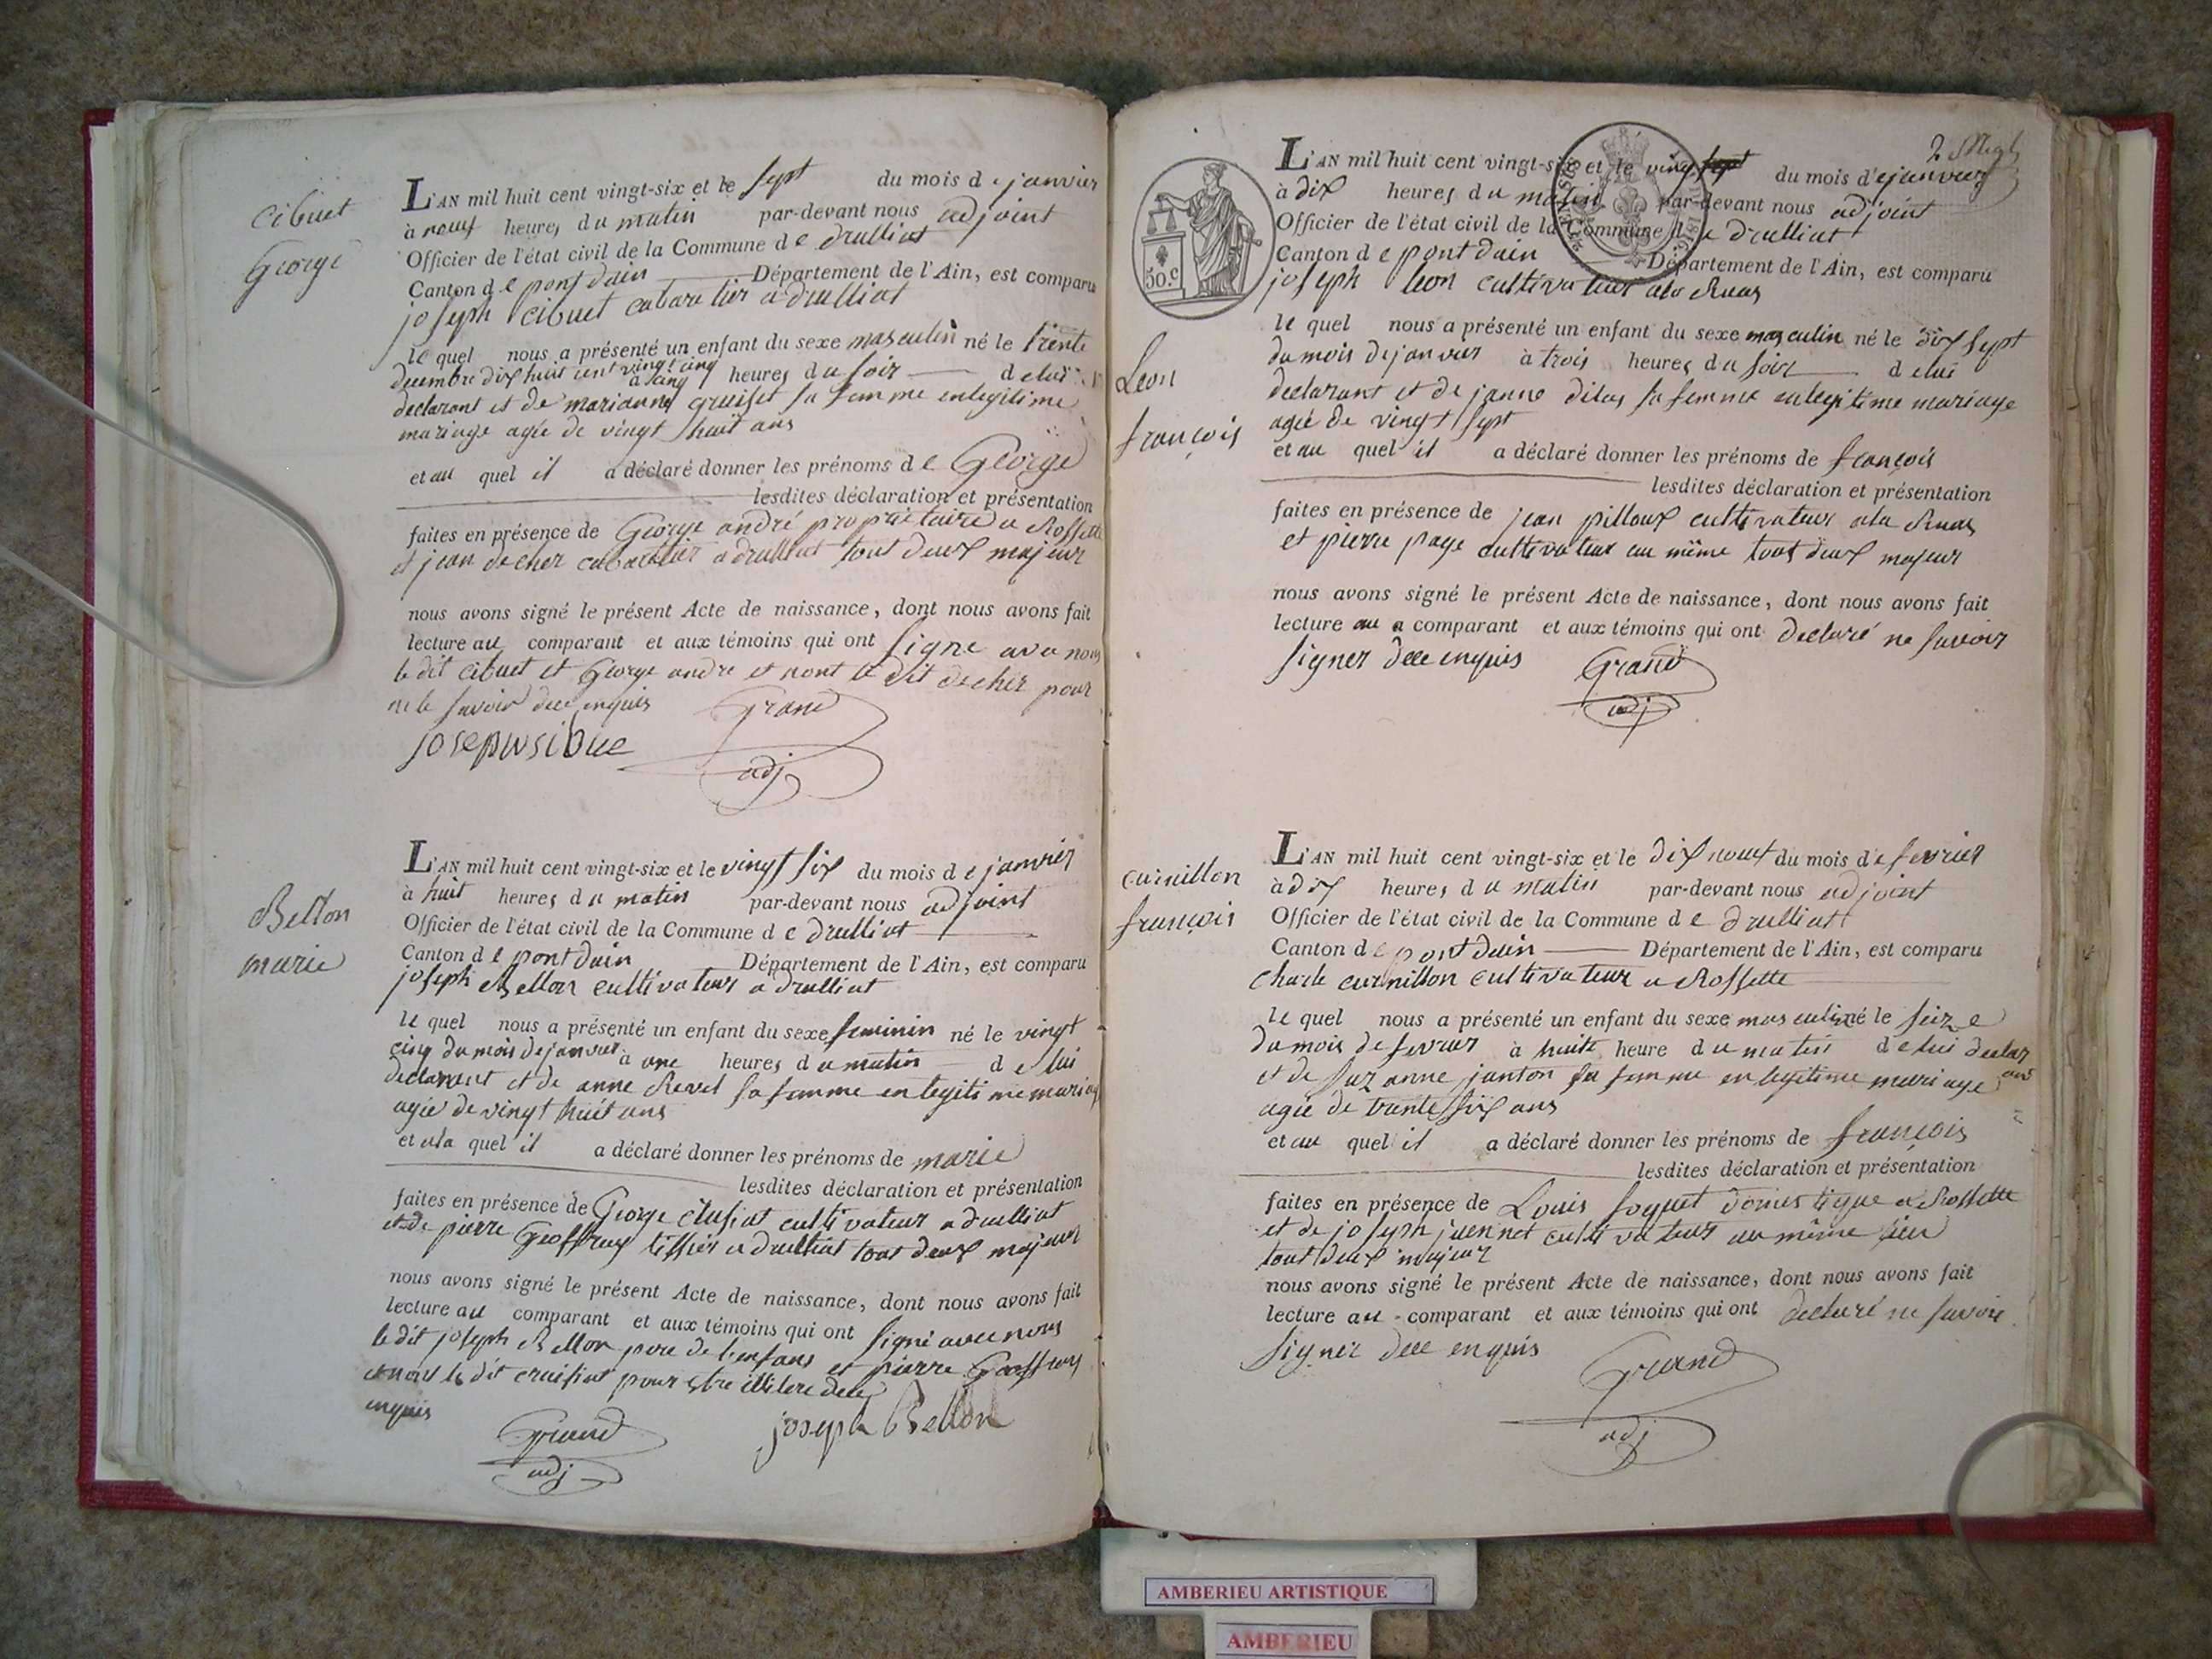 cibuet
George
L'AN mil huit cent vingt-six et le sept du mois de janvier
à neuf heures du matin par-devant nous adjoint
Officier de l'état civil de la Commune de druilliat
Canton de pont dain Département de l'Ain, est comparu
joseph cibuet cabaretier a druilliat
le quel nous a présenté un enfant du sexe masculin né le trente
decembre dix huit cent vingt cinq à cinq heures du soir de lui
declarant et de marianne cruiset sa femme en legitime
mariage agée de vingt huit ans
et au quel il a déclaré donner les prénoms de George
lesdites déclaration et présentation
faites en présence de George andré propriétaire a Rossette
et jean decher cabaretier a druilliat tout deux majeur
nous avons signé le présent Acte de naissance, dont nous avons fait
lecture au comparant et aux témoins qui ont signe avec nous
le dit cibuet et George andre et nont le dit decher pour
ne le savoir de ce enquis Grand
josepwsibue adj
Bellon
marie
L'AN mil huit cent vingt-six et le vingt six du mois de janvier
à huit heures du matin par-devant nous adjoint
Officier de l'état civil de la Commune de druilliat
Canton de pont dain Département de l'Ain, est comparu
joseph Bellon cultivateur a druilliat
le quel nous a présenté un enfant du sexe feminin né le vingt
cinq du mois de janvier à une heures du matin de lui
declarant et de anne Revel sa femme en legitime mariag
agée de vingt huit ans
et ala quel il a déclaré donner les prénoms de marie
lesdites déclaration et présentation
faites en présence de George cultivateur a druilliat
et de pierre Geoffray tissier a druilliat tout deux majeur
nous avons signé le présent Acte de naissance, dont nous avons fait
lecture au comparant et aux témoins qui ont signé avec nous
le dit joseph Bellon pere de l'enfans et pierre Geoffray
et nont le dit cruisiat pour etre illitere de ce
enquis
Grand joseph Bellon
adj
2
L'AN mil huit cent vingt-six et le vingt du mois de janvier
à dix heures du matin par-devant nous adjoint
Officier de l'état civil de la Commune de druilliat
50.c Canton de pont dain Département de l'Ain, est comparu
joseph leon cultivateur ala Ruas
Leon
françois
le quel nous a présenté un enfant du sexe masculin né le dix sept
du mois de janvier à trois heures du soir de lui
declarant et de janne dilas sa femme en legitime mariage
agée de vingt sept
et au quel il a déclaré donner les prénoms de françois
lesdites déclaration et présentation
faites en présence de jean pilloux cultivateur ala Ruas
et pierre page cultivateur au même tout deux majeur
nous avons signé le présent Acte de naissance, dont nous avons fait
lecture au comparant et aux témoins qui ont declaré ne savoir
signer de ce enquis Grand
adj
curnillon
françois
L'AN mil huit cent vingt-six et le dix neuf du mois de fevrier
à dix heures du matin par-devant nous adjoint
Officier de l'état civil de la Commune de druilliat
Canton de pont dain Département de l'Ain, est comparu
charle curnillon cultivateur a Rossette
le quel nous a présenté un enfant du sexe masculin né le seize
du mois de fevrier à huite heure du matin de lui declar
ant
et de suzanne janton sa femme en legitime mariage
agée de trante six ans
et au quel il a déclaré donner les prénoms de françois
lesdites déclaration et présentation
faites en présence de Louis soquet domestique a Rossette
et de joseph juennet cultivateur au même lieu
tout deux majeur
nous avons signé le présent Acte de naissance, dont nous avons fait
lecture au comparant et aux témoins qui ont declaré ne savoir
signer de ce enquis Grand
adj
AMBERIEU ARTISTIQUE
AMBERIEU